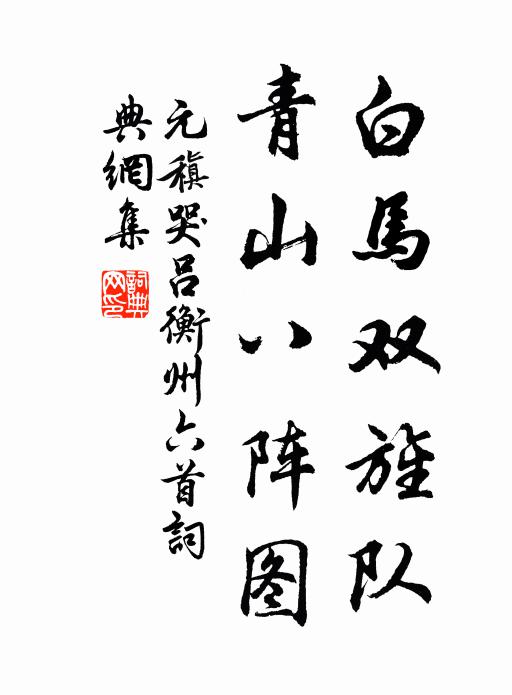 白馬双旌队
青山八阵图
元稹哭吕衡州六首詞
典網集
詞典网印